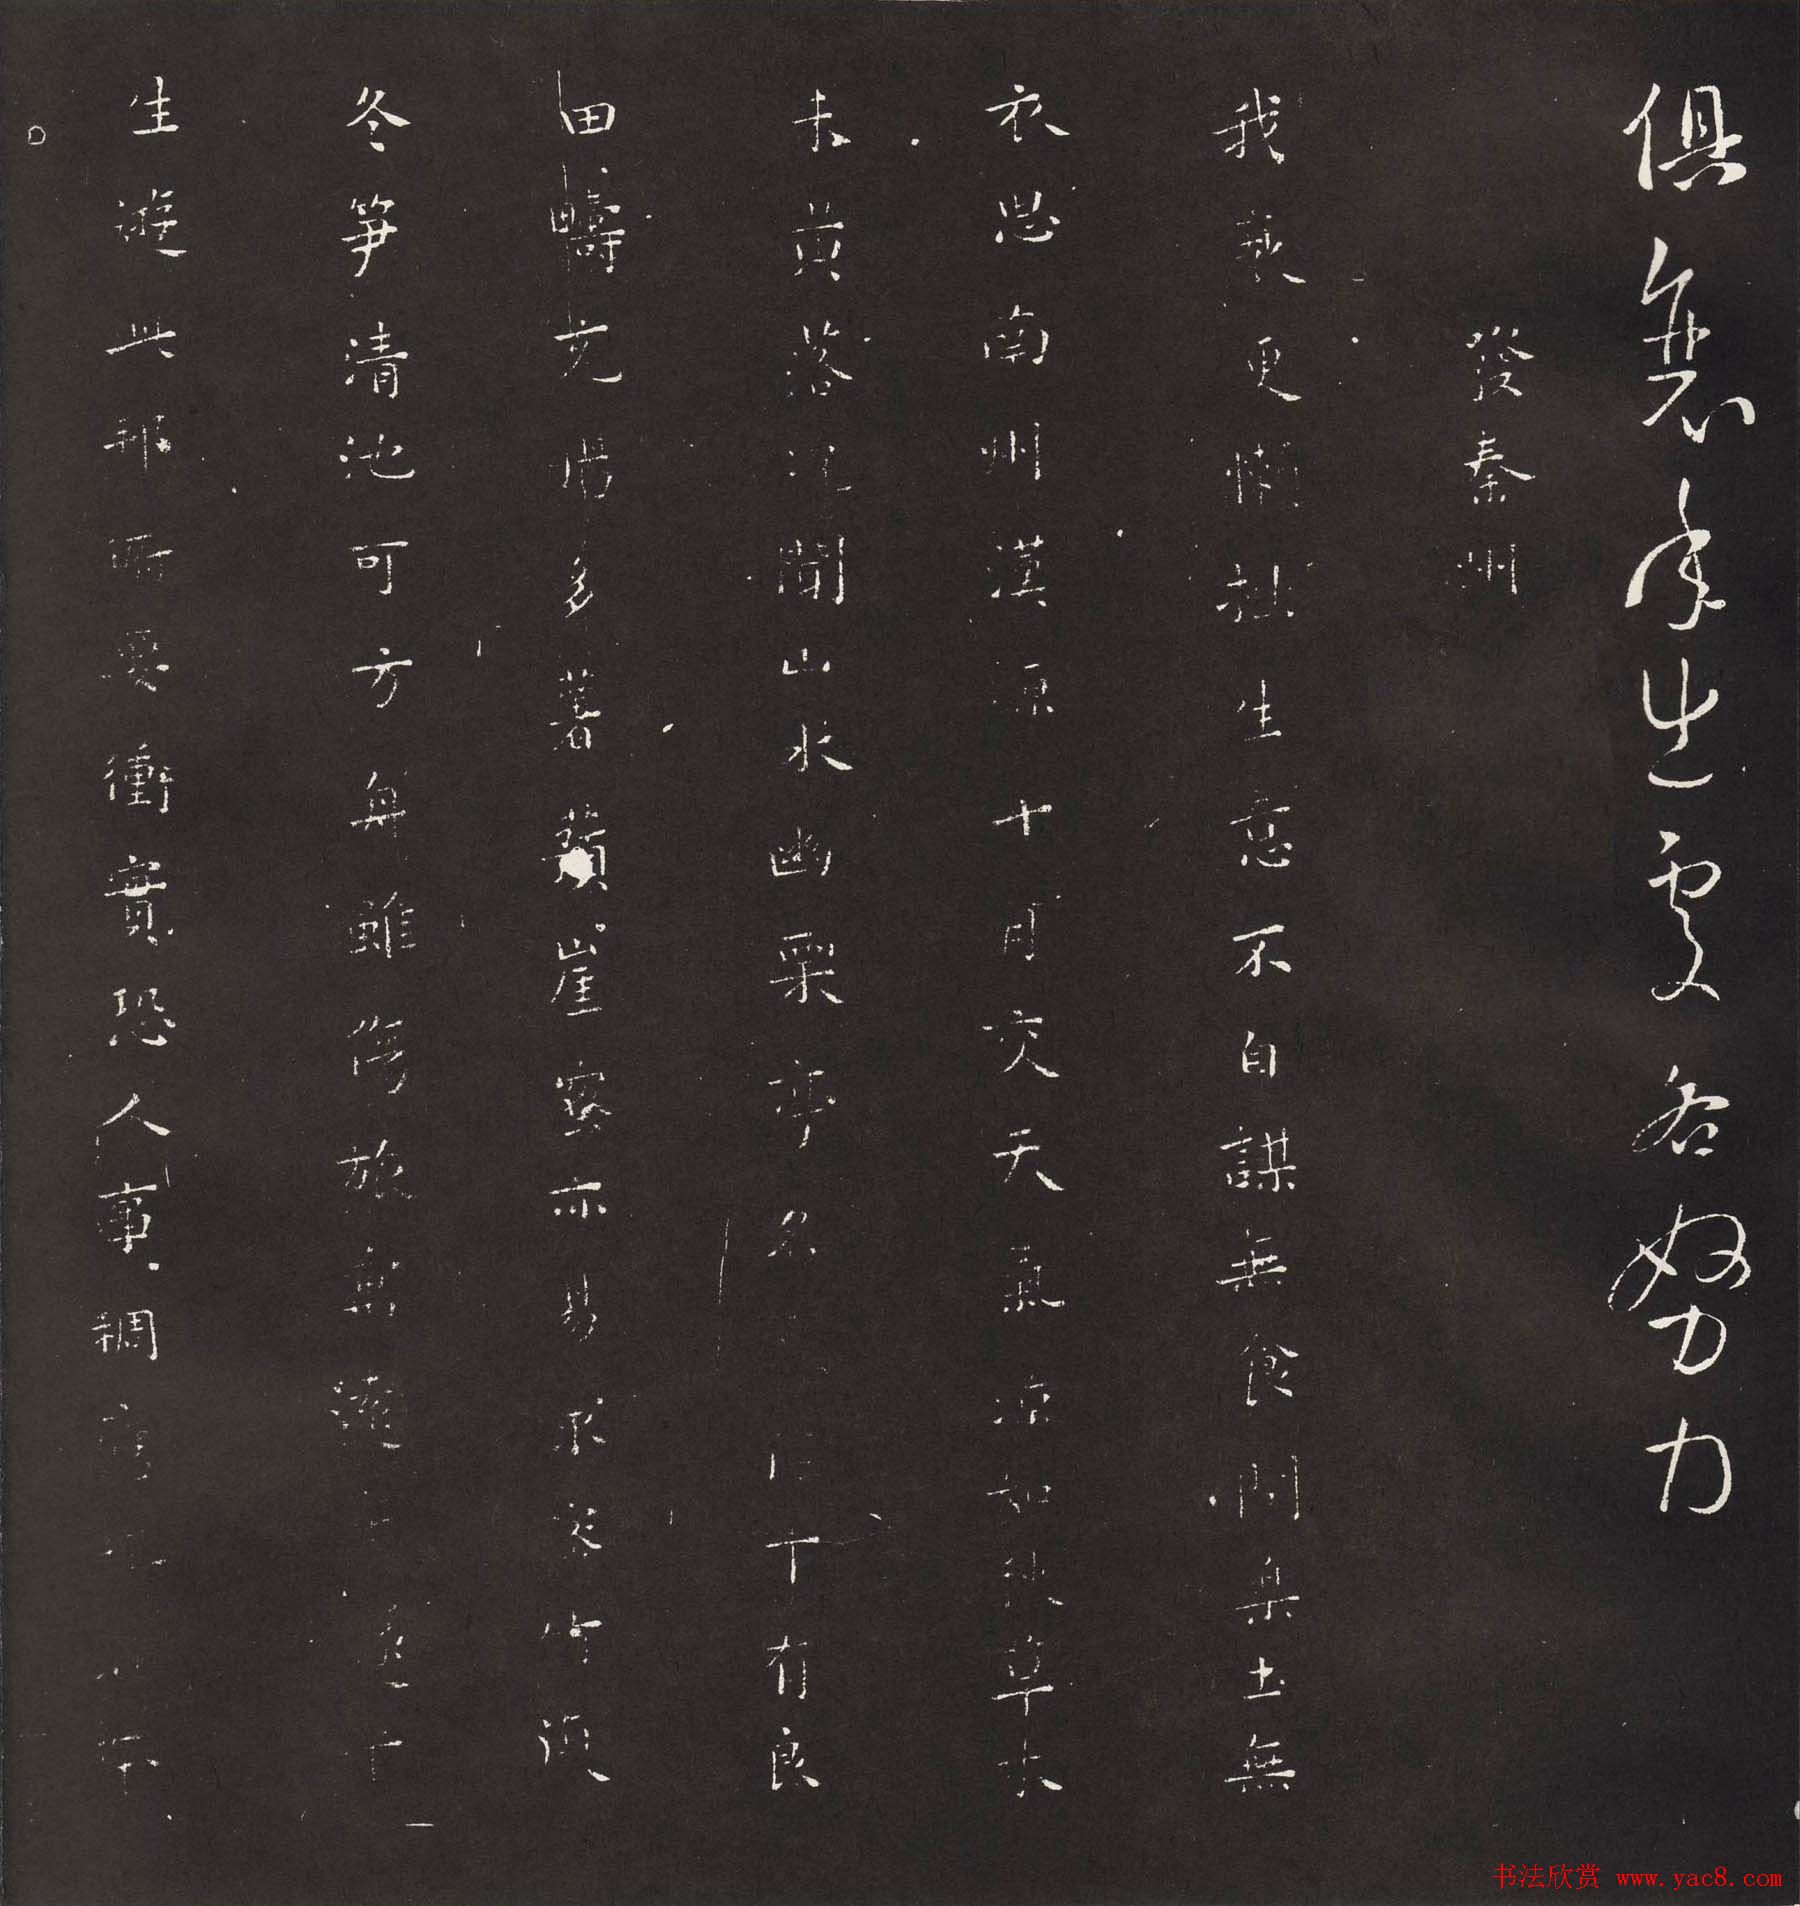 俱衰年出處各努力
發秦州
我衰更懶拙生意不自謀無食問樂土無
衣思南州漢源十月交天氣涼如秋草木
未黃落況聞山水幽栗亭名下有良
田疇充腸多薯蕷崖蜜亦易求密竹復
冬笋清池可方舟雖傷旅寓遠遂平
生遊此邦所要衝實恐人事稠
书法欣赏 www.yac8.com